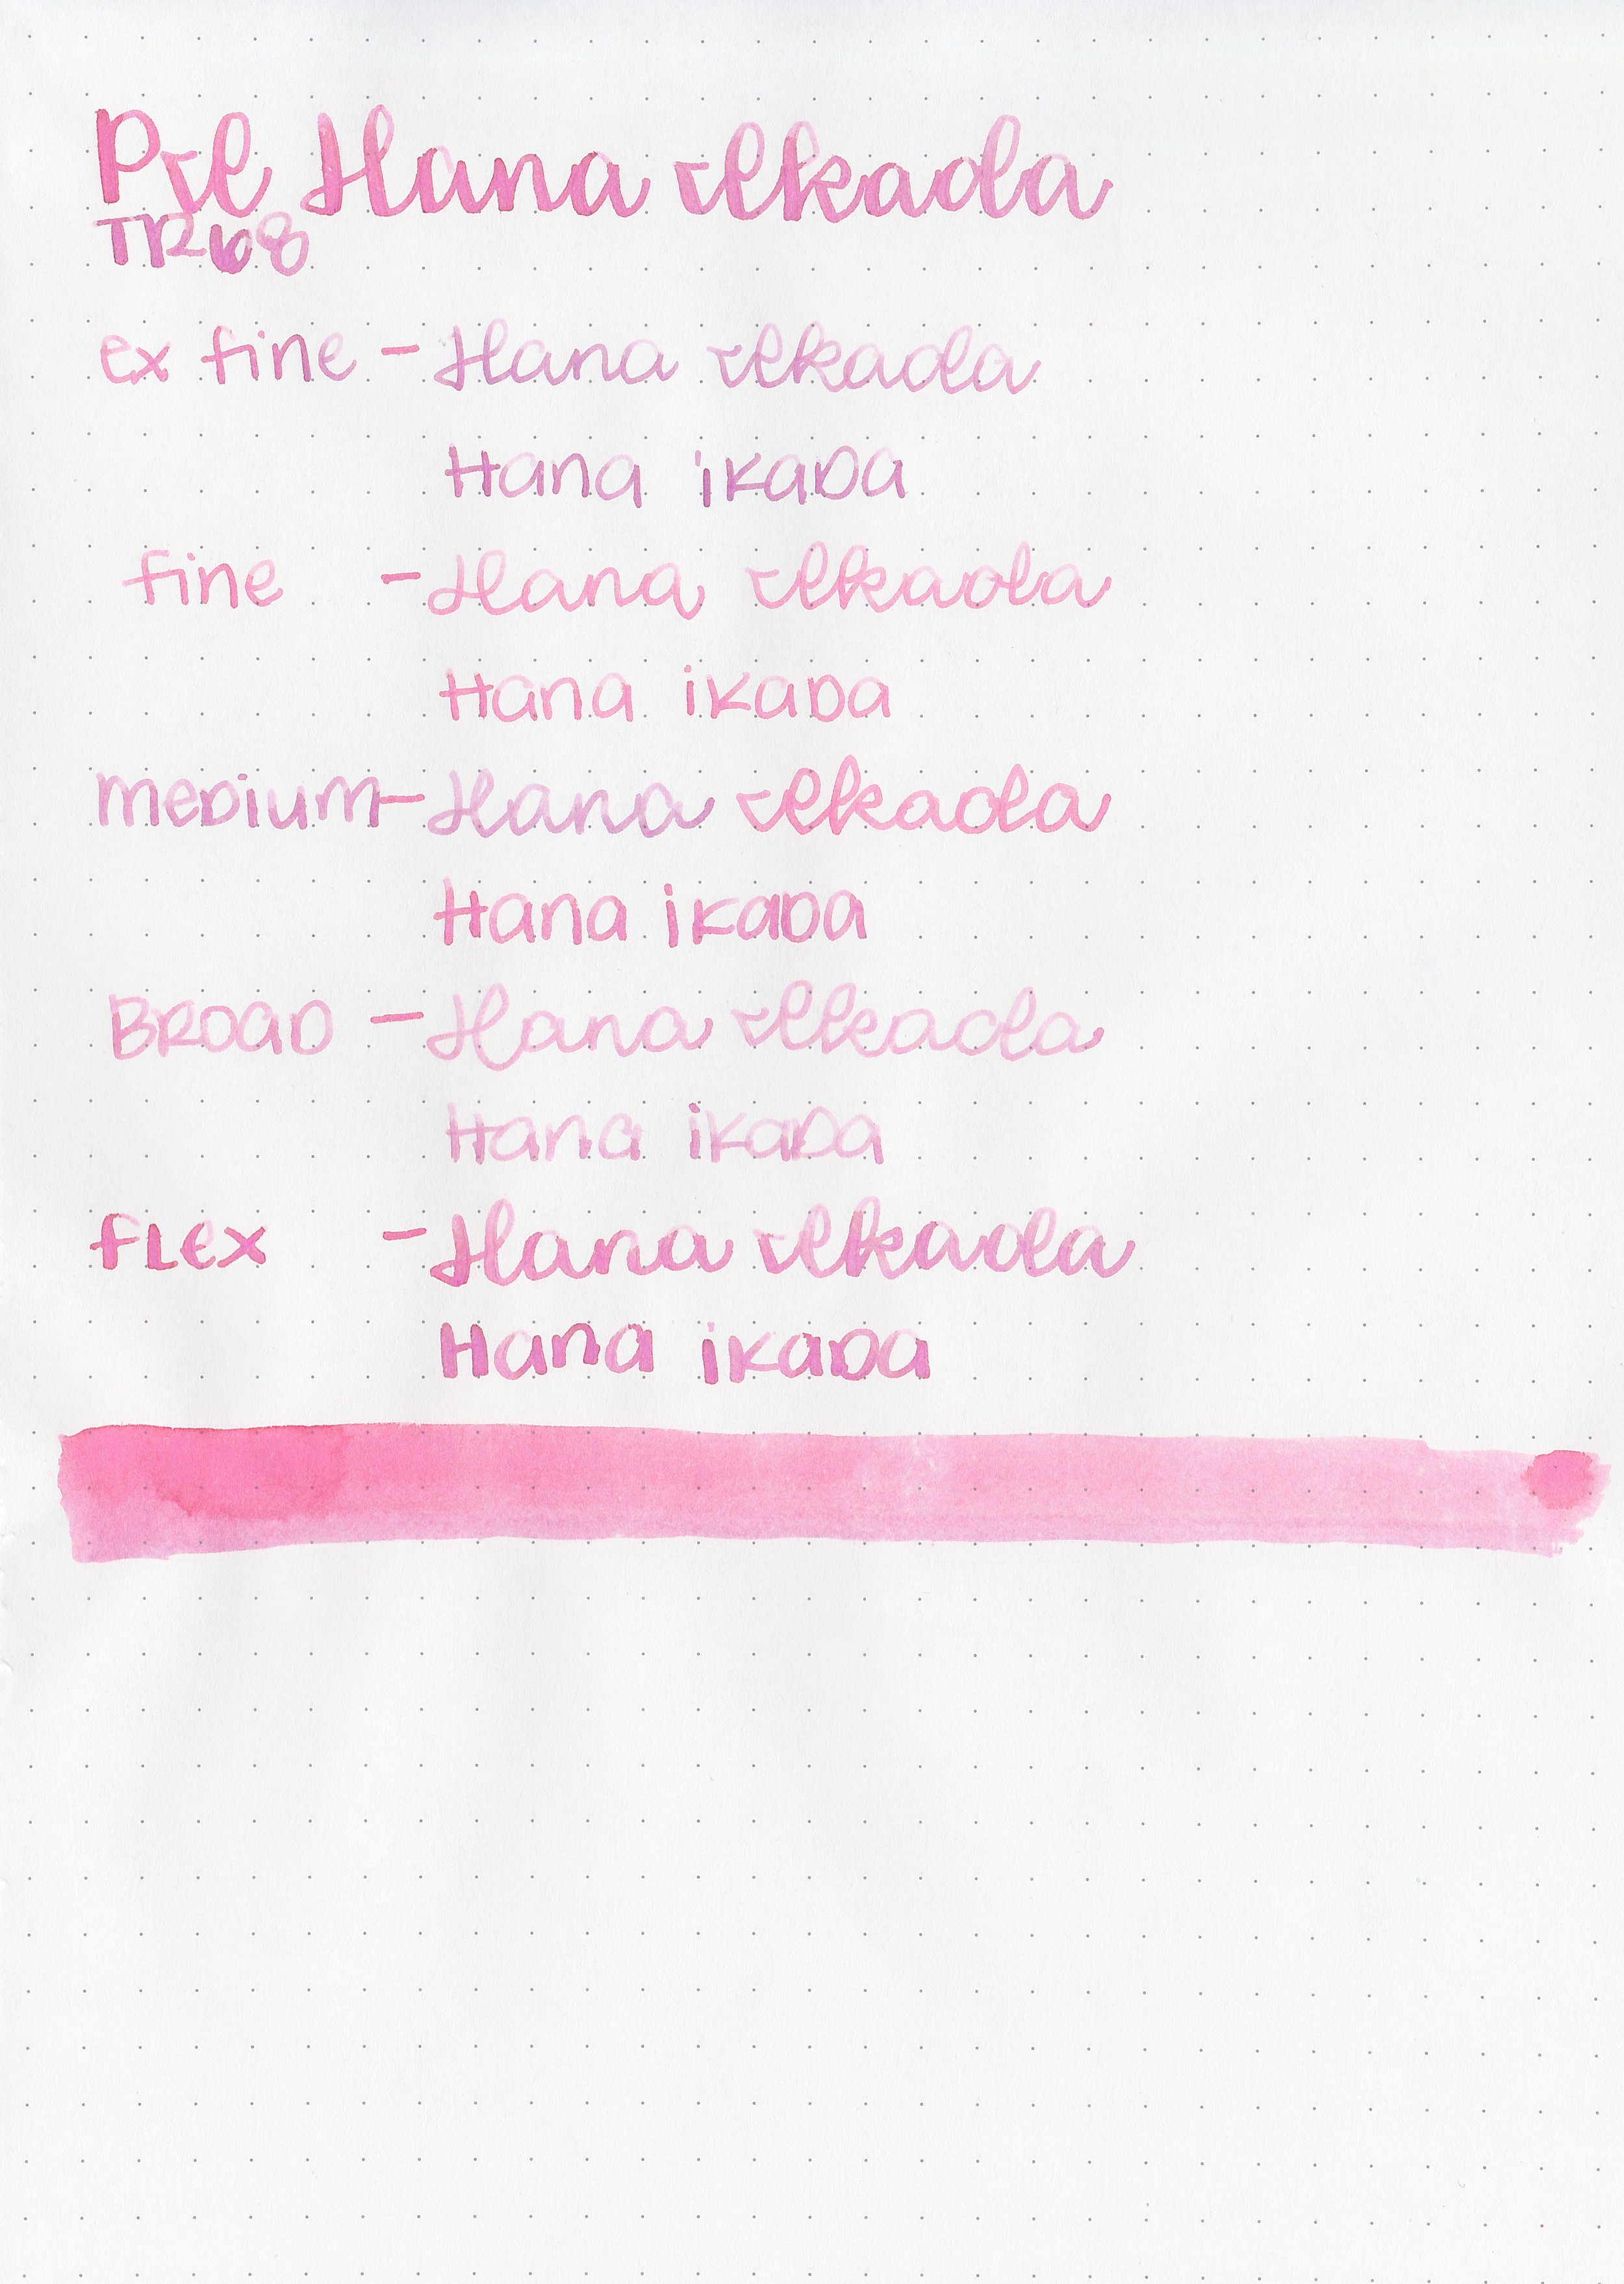 PIL Hana Ikada
TR68
ex fine - Hana Ikada
Hana ikada
fine - Hana Ikada
Hana ikada
medium - Hana Ikada
Hana ikada
BROAD - Hana Ikada
Hana ikada
FLEX - Hana Ikada
Hana ikada